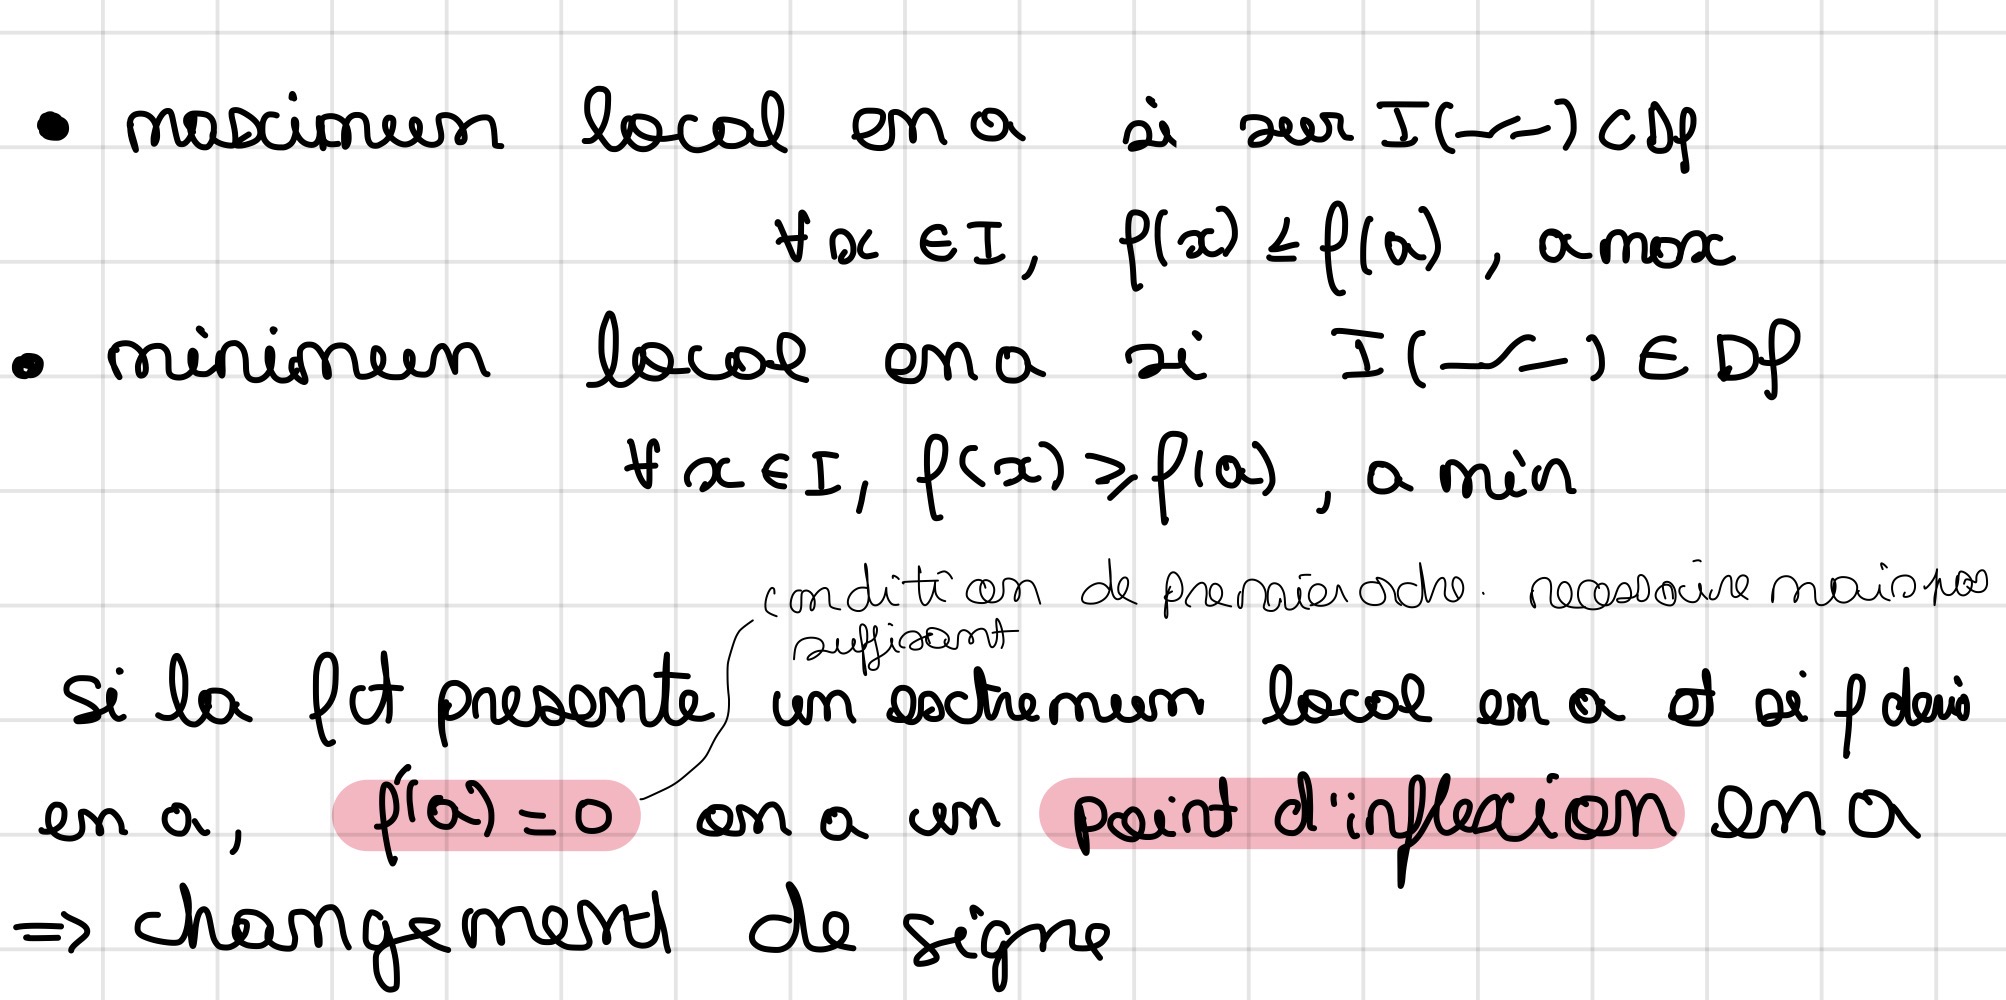 • maximum local en a si sur I(——) ⊂ Df
∀x ∈ I, f(x) ≤ f(a), a max
• minimum local en a si I(——) ∈ Df
∀x ∈ I, f(x) ≥ f(a), a min
condition de premier ordre. necessaire mais pas
suffisant
si la fct presente un extremum local en a et si f deriv
en a, f'(a) = 0 on a un point d'inflexion en a
=> changement de signe